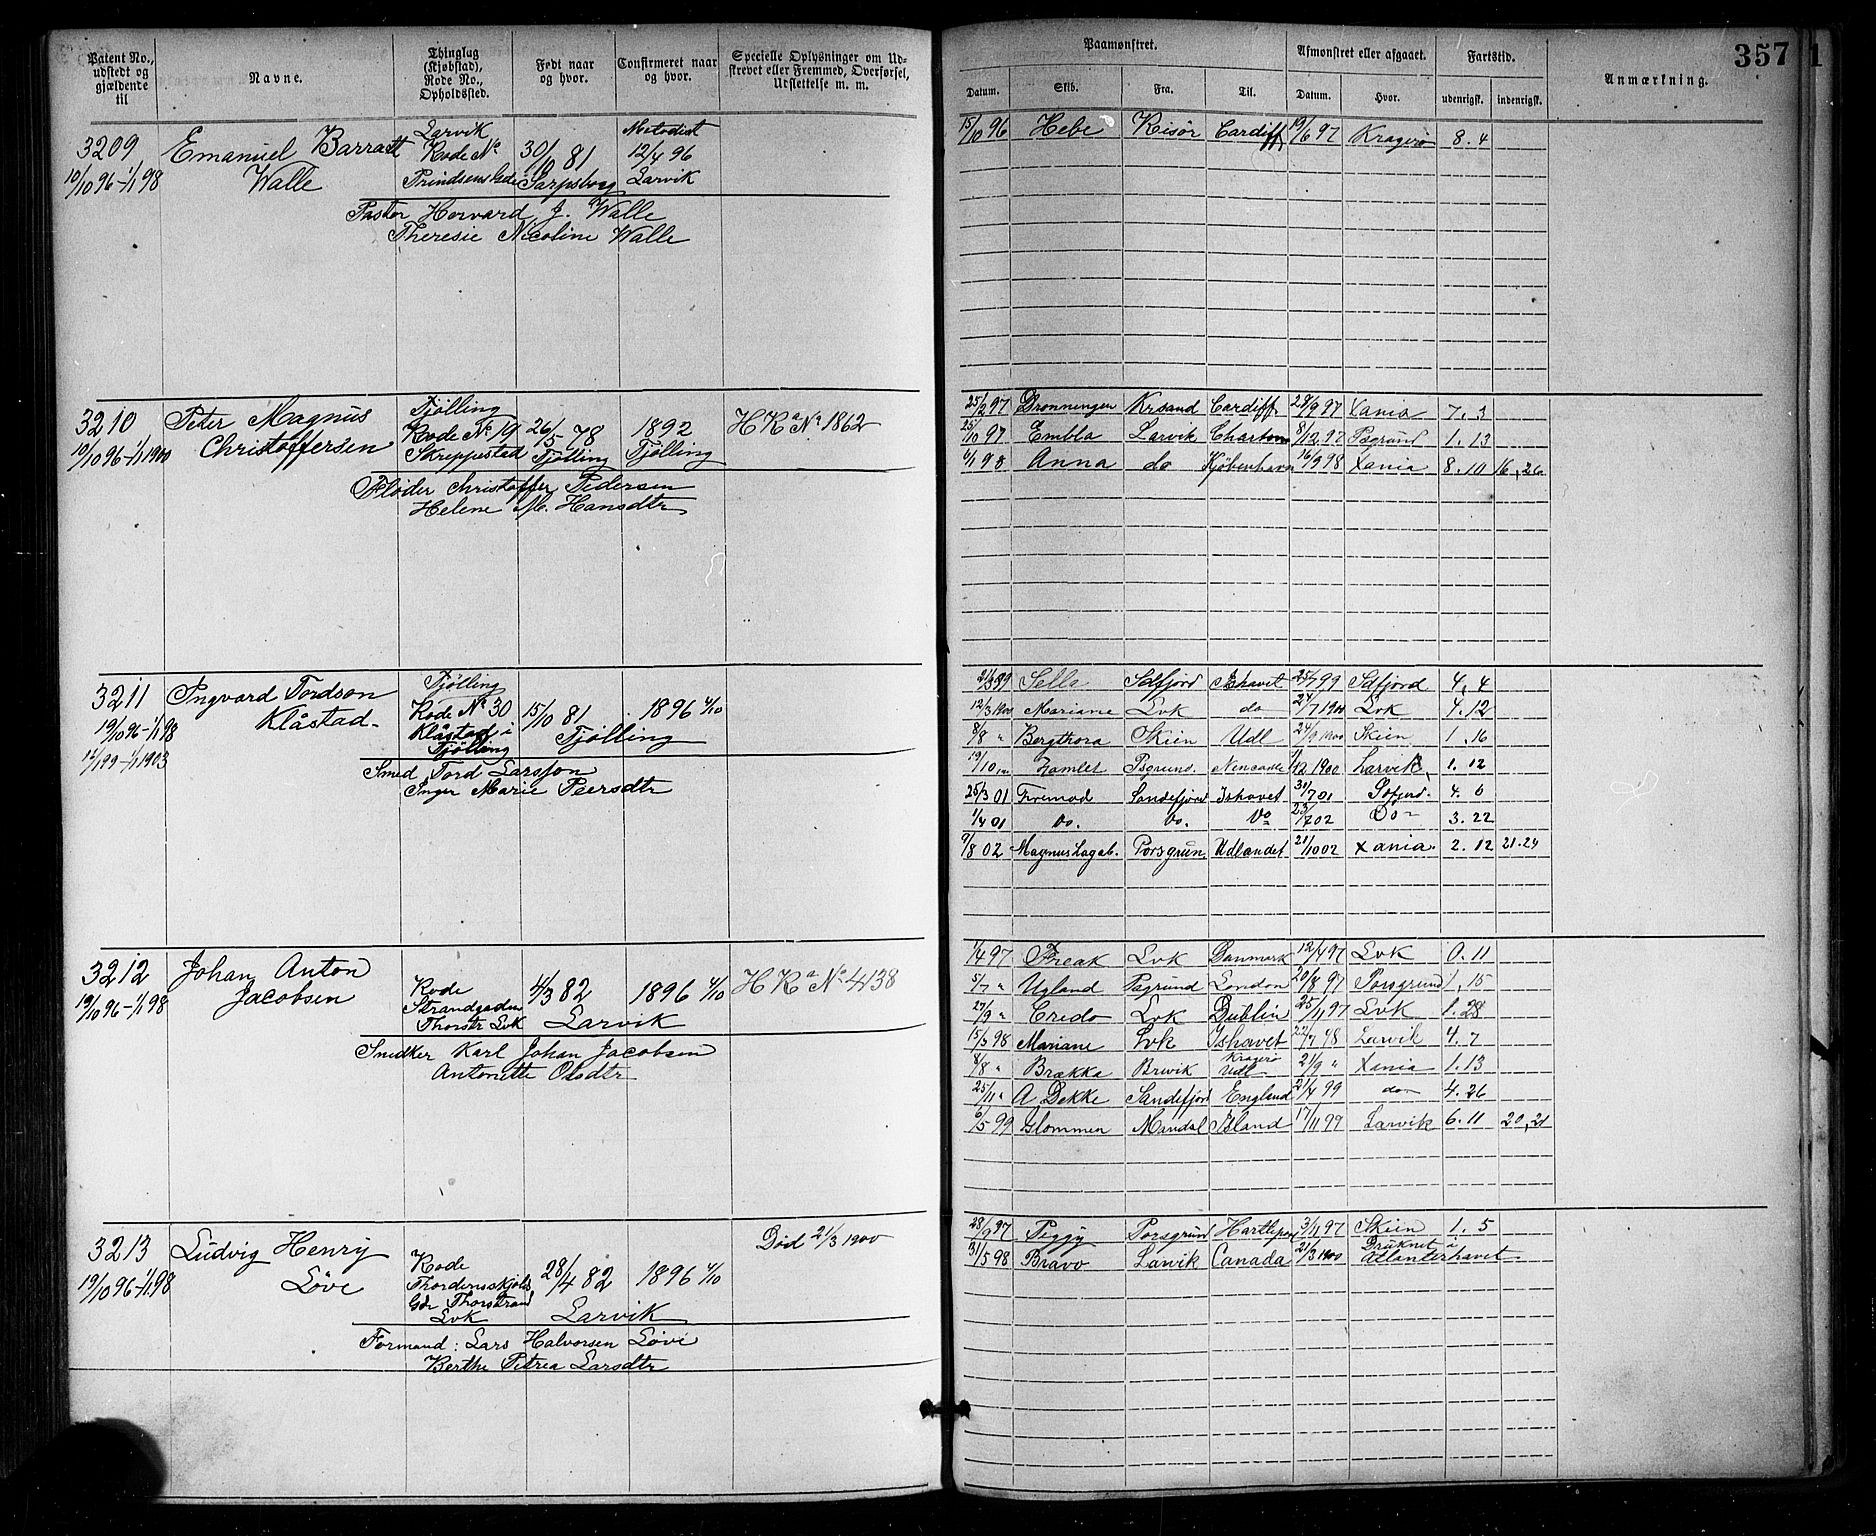 357
Patent No., udstedt og gjældende til
Navne.
Thinglag (Kjøbstad), Rode No., Opholdssted.
Født naar og hvor.
Confirmeret naar og hvor.
Specielle Oplysninger om Udskrevet eller Fremmed, Overførsel, Udslettelse m. m.
Paamønstret.
Afmønstret eller afgaaet.
Fartstid.
Anmærkning.
Datum. Skib. Fra. Til. Datum. Hvor. udenrigsk. indenrigsk.
3209 Emanuel Barratt Walle
10/10 96-1/1 98
Larvik
Rode No
Prindsens
30/10 81
Sarpsborg
Metodist
12/4 96
Larvik
Pastor Hervard J. Walle
Theresie Nicoline Walle
15/10 96 Hebe Risör Cardiff 19/6 97 Kragerø 8.4
3210 Peter Magnus Christoffersen
10/10 96-1/1 1900
Tjølling
Rode No 19
Skreppestad
26/5 78
Tjølling
1892
Tjølling
H Ra No 1862
Fløder Christoffer Pedersen
Helene M. Hansdtr
25/2 97 Dronningen Krsand Cardiff 28/9 97 Xania 7.3
25/10 97 Embla Larvik 8/12 97 Psgrund 1.13
6/1 98 Anna do Kjøbenhavn 16/9 98 Xania 8.10 16,26
3211 Ingvard Tordson Klåstad
19/10 96-1/1 98
14/1 99-1/1 1903
Tjølling
Rode No 30
Klåstad i
Tjølling
15/10 81
Tjølling
1896 4/10
Smed Tord Larsson
Inger Marie Peersdtr
2/3 99 Sella Sdfjord Ishavet 25/7 99 Sdfjord 4.4
12/3 1900 Mariane Lvk do 24/7 1900 Lvk 4.12
8/8 " Bergthora Skien Udl 24/9 1900 Skien 1.16
19/10 Hamlet Psgrund. Newcastle 1/12 1900 Larvik 1.12
25/3 01 Fremad Sandefjord Ishavet 31/7 01 Sdfjord 4.6
1/4 01 Do. Do. Do 23/7 02 Do 3.22
9/8 02 Magnus Lagab. Porsgrun Udlandet 21/10 02 Xania 2.12 21.24
3212 Johan Anton Jacobsen
19/10 96-1/1 98
Rode
Strandgaden
Thorstr Lvk
4/3 82
Larvik
1896 4/10
H Ra No 4138
Snedker Karl Johan Jacobsen
Antonette Olsdtr
1/4 97 Freak Lvk Danmark 12/4 97 Lvk 0.11
5/7 " Ugland Psgrund London 20/8 97 Porsgrund 1,15
27/9 " Credo Lvk Dublin 25/11 97 Lvk 1.28
15/3 98 Mariane Lvk Ishavet 22/7 98 Larvik 4.7
8/8 " Brækka Brevik Kragerø Udl 21/9 " Xania 1.13
25/11 " A Dekke Sandefjord England 21/4 99 do 4.26
6/5 99 Glommen Mandal Island 17/11 99 Larvik 6.11 20,21
3213 Ludvig Henry Løve
19/10 96-1/1 98
Rode
Thordenskjölds
Gde Thorstrand
Lvk
28/4 82
Larvik
1896 4/10
Død 21/3 1900
Formand: Lars Halvorsen Løve
Berthe Petrea Larsdtr
28/9 97 Peggy Porsgrund Hartlepool 3/11 97 Skien 1.5
31/5 98 Bravo Larvik Canada 21/3 1900 Druknet i Atlanterhavet